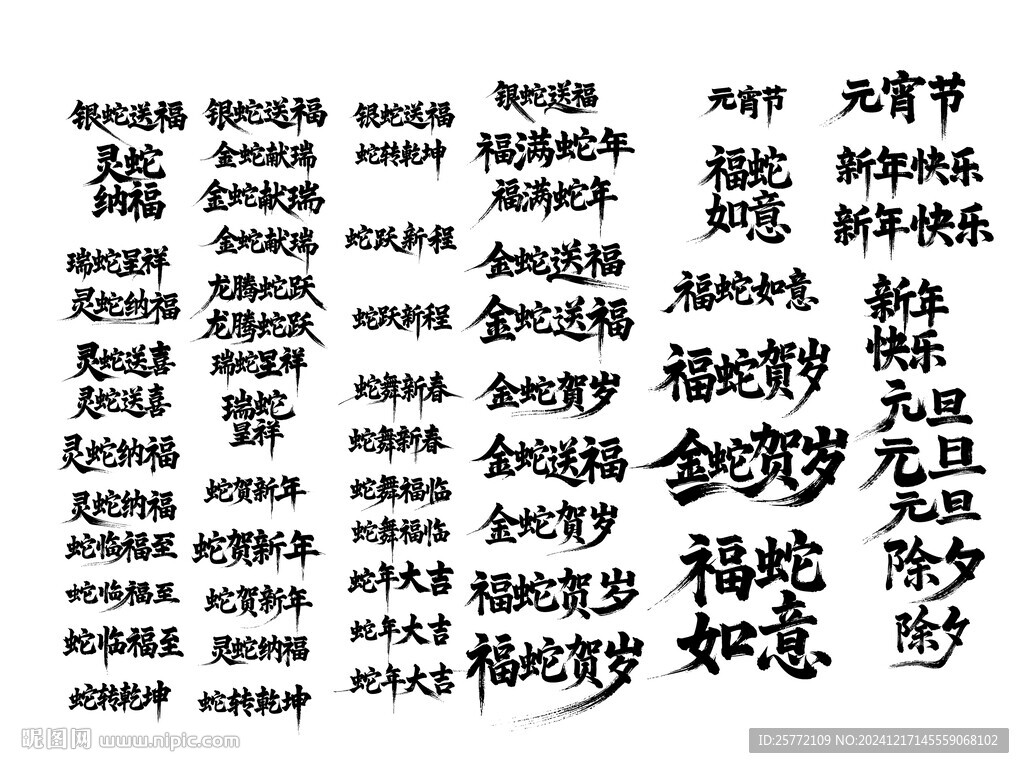 银蛇送福
灵蛇
纳福
瑞蛇呈祥
灵蛇纳福
灵蛇送喜
灵蛇送喜
灵蛇纳福
灵蛇纳福
蛇临福至
蛇临福至
蛇临福至
蛇转乾坤
银蛇送福
金蛇献瑞
金蛇献瑞
金蛇献瑞
龙腾蛇跃
龙腾蛇跃
瑞蛇呈祥
瑞蛇
呈祥
蛇贺新年
蛇贺新年
蛇贺新年
灵蛇纳福
蛇转乾坤
银蛇送福
蛇转乾坤
蛇跃新程
蛇跃新程
蛇舞新春
蛇舞新春
蛇舞福临
蛇舞福临
蛇年大吉
蛇年大吉
蛇年大吉
银蛇送福
福满蛇年
福满蛇年
金蛇送福
金蛇送福
金蛇贺岁
金蛇送福
金蛇贺岁
福蛇贺岁
福蛇贺岁
元宵节
福蛇
如意
福蛇如意
福蛇贺岁
金蛇贺岁
福蛇
如意
元宵节
新年快乐
新年快乐
新年
快乐
元旦
元旦
元旦
除夕
除夕
昵图网 www.nipic.com
ID:25772109 NO:20241217145559068102